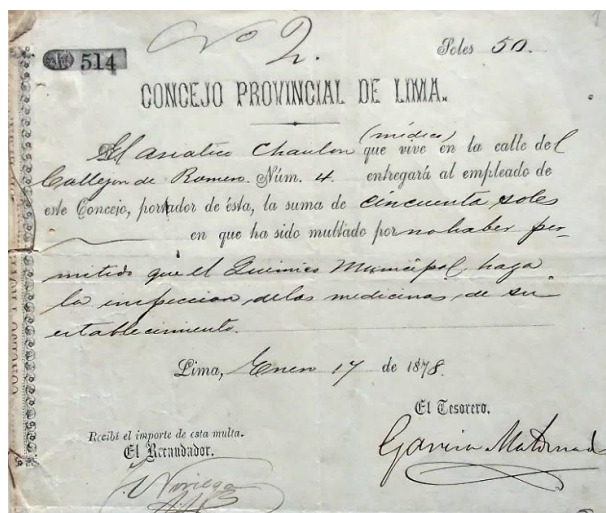 514
No 2.
Soles 50.
CONCEJO PROVINCIAL DE LIMA.
(médico)
El asiatico Chaulon que vive en la calle del
Callejon de Romero. Núm. 4. entregará al empleado de
este Concejo, portador de ésta, la suma de cincuenta soles
en que ha sido multado por no haber per-
mitido que el Quimico Municipal haga
la inspeccion de las medicinas de su
establecimiento.
Lima, Enero 17 de 1878.
El Tesorero.
Recibí el importe de esta multa.
El Recaudador.
Noriega